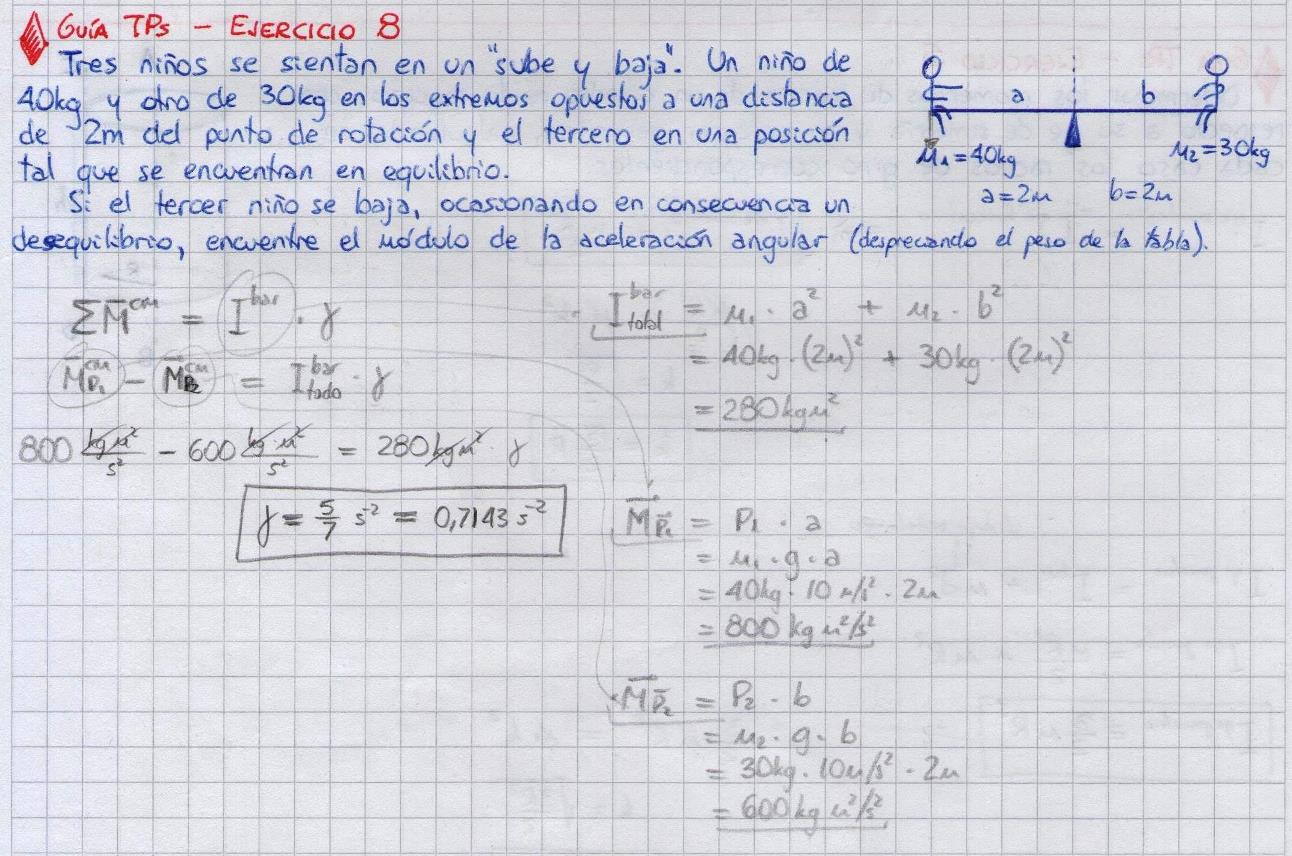 GUÍA TPs - EJERCICIO 8
Tres niños se sientan en un "sube y baja". Un niño de
40kg y otro de 30kg en los extremos opuestos a una distancia
de 2m del punto de rotación y el tercero en una posición
tal que se encuentran en equilibrio.
Si el tercer niño se baja, ocasionando en consecuencia un
desequilibrio, encuentre el módulo de la aceleración angular (despreciando el peso de la tabla).
a b
m₁=40kg m₂=30kg
a=2m b=2m
ΣM̄^cm = I^bar · γ
M̄^cm_P₁ - M̄^cm_P₂ = I^bar_todo · γ
800 kg m²/s² - 600 kg m²/s² = 280 kgm² · γ
γ = 5/7 s⁻² = 0,7143 s⁻²
I^bar_total = m₁ · a² + m₂ · b²
= 40kg · (2m)² + 30kg · (2m)²
= 280kgm²
M̄_P̄₁ = P₁ · a
= m₁ · g · a
= 40kg · 10 m/s² · 2m
= 800 kg m²/s²
M̄_P̄₂ = P₂ · b
= m₂ · g · b
= 30kg · 10m/s² · 2m
= 600 kg m²/s²